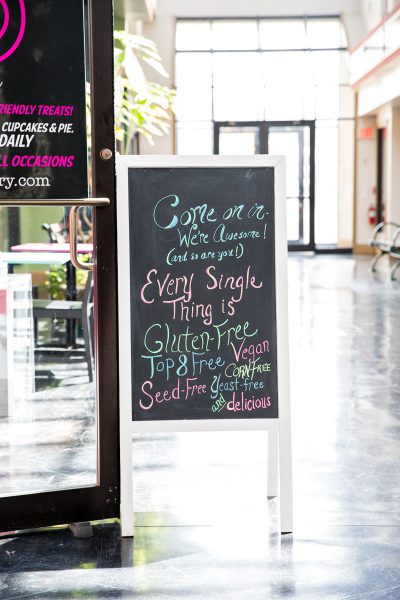 RIENDLY TREATS!
CUPCAKES & PIE.
DAILY
LL OCCASIONS
ry.com
Come on in-
We're Awesome!
(and so are you!)
Every Single
Thing is
Gluten-Free
Vegan
Top 8 Free
CORN FREE
Seed-Free
Yeast-free
and delicious